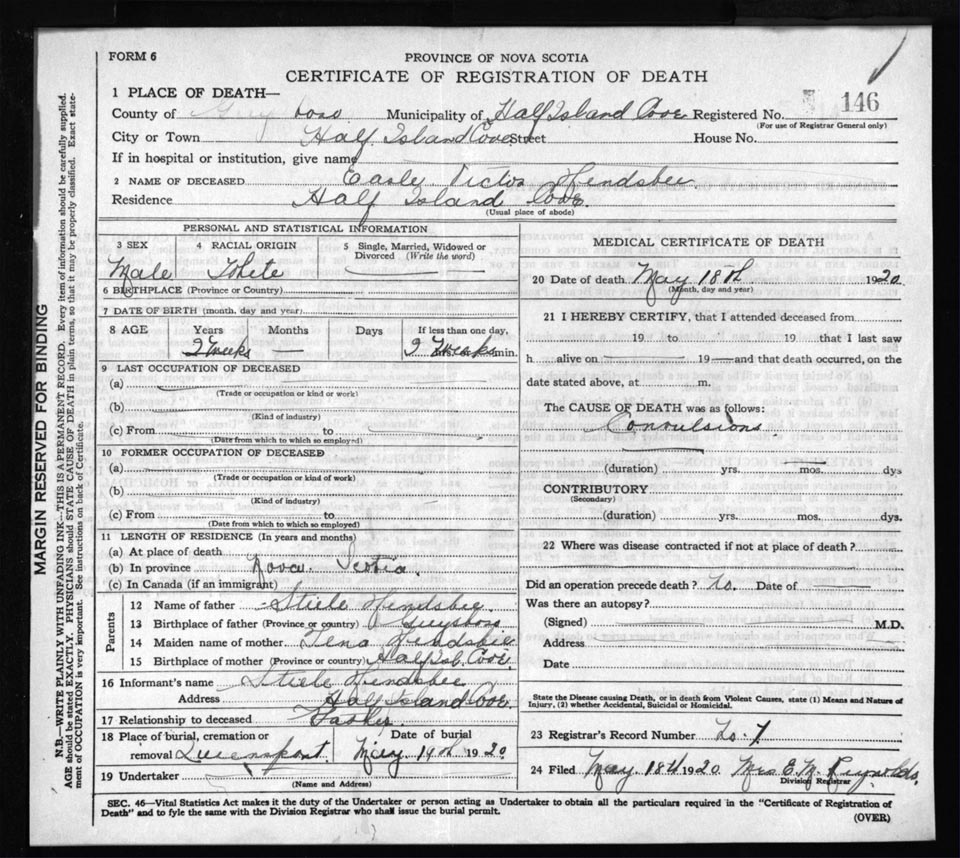 FORM 6
PROVINCE OF NOVA SCOTIA
CERTIFICATE OF REGISTRATION OF DEATH
1 PLACE OF DEATH—
County of Guysboro Municipality of Half Island Cove Registered No. 146
(For use of Registrar General only)
City or Town Half Island Cove Street House No.
If in hospital or institution, give name
2 NAME OF DECEASED Earle Victor Hendsbee
Residence Half Island Cove.
(Usual place of abode)
PERSONAL AND STATISTICAL INFORMATION
3 SEX 4 RACIAL ORIGIN 5 Single, Married, Widowed or
Divorced (Write the word)
Male White
6 BIRTHPLACE (Province or Country)
7 DATE OF BIRTH (month, day and year)
8 AGE Years Months Days If less than one day,
2 Weeks — 2 Weeks min.
9 LAST OCCUPATION OF DECEASED
(a)
(Trade or occupation or kind or work)
(b)
(Kind of industry)
(c) From to
(Date from which to which so employed)
10 FORMER OCCUPATION OF DECEASED
(a)
(Trade or occupation or kind of work)
(b)
(Kind of industry)
(c) From to
(Date from which to which so employed)
11 LENGTH OF RESIDENCE (In years and months)
(a) At place of death
(b) In province Nova Scotia.
(c) In Canada (if an immigrant)
Parents
12 Name of father Stiele Hendsbee
13 Birthplace of father (Province or country) Guysboro
14 Maiden name of mother Tena Hendsbee
15 Birthplace of mother (Province or country) Half Isl. Cove.
16 Informant's name Stiele Hendsbee
Address Half Island Cove.
17 Relationship to deceased Father
18 Place of burial, cremation or Date of burial
removal Queensport May 19th 1920
19 Undertaker
(Name and Address)
MEDICAL CERTIFICATE OF DEATH
20 Date of death May 18th 1920
(Month, day and year)
21 I HEREBY CERTIFY, that I attended deceased from
19 to 19 that I last saw
h alive on 19 and that death occurred, on the
date stated above, at m.
The CAUSE OF DEATH was as follows:
Convulsions
(duration) yrs. mos. dys
CONTRIBUTORY
(Secondary)
(duration) yrs. mos. dys.
22 Where was disease contracted if not at place of death?
Did an operation precede death? No. Date of
Was there an autopsy?
(Signed) M.D.
Address
Date
State the Disease causing Death, or in death from Violent Causes, state (1) Means and Nature of
Injury, (2) whether Accidental, Suicidal or Homicidal.
23 Registrar's Record Number No. 7
24 Filed May 18th 1920 Mrs E. M. Reynolds.
Division Registrar
SEC. 46—Vital Statistics Act makes it the duty of the Undertaker or person acting as Undertaker to obtain all the particulars required in the "Certificate of Registration of
Death" and to fyle the same with the Division Registrar who shall issue the burial permit.
(OVER)
MARGIN RESERVED FOR BINDING
N.B.—WRITE PLAINLY WITH UNFADING INK—THIS IS A PERMANENT RECORD. Every item of information should be carefully supplied.
AGE should be stated EXACTLY. PHYSICIANS should STATE CAUSE OF DEATH in plain terms, so that it may be properly classified. Exact state-
ment of OCCUPATION is very important. See instructions on back of Certificate.